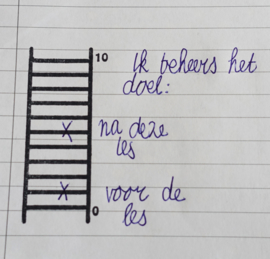 10
Ik beheers het
doel:
X
na deze
les
X
voor de
les
0